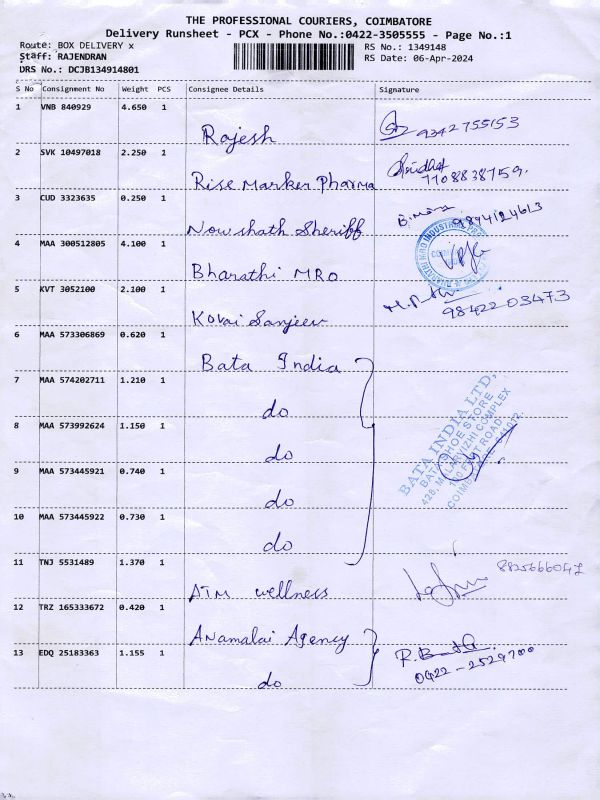 THE PROFESSIONAL COURIERS, COIMBATORE
Delivery Runsheet - PCX - Phone No.:0422-3505555 - Page No.:1
Route: BOX DELIVERY x
Staff: RAJENDRAN
DRS No.: DCJB134914801
RS No.: 1349148
RS Date: 06-Apr-2024
S No Consignment No Weight PCS Consignee Details Signature
1 VNB 840929 4.650 1
Rajesh 9342755153
2 SVK 10497018 2.250 1
Rise Marker Pharma 7708838759.
3 CUD 3323635 0.250 1
Nowshath Sheriff 9894124613
4 MAA 300512805 4.100 1
Bharathi MRO
5 KVT 3052100 2.100 1
Kovai Sanjeev 98422 03473
6 MAA 573306869 0.620 1
Bata India
7 MAA 574202711 1.210 1
do
8 MAA 573992624 1.150 1
do
9 MAA 573445921 0.740 1
do
10 MAA 573445922 0.730 1
do
BATA INDIA LTD,
BATA SHOE STORE
428, MALARVIZHI COMPLEX
100 FEET ROAD,
11 TNJ 5531489 1.370 1
ATM wellness
12 TRZ 165333672 0.420 1
Anamalai Agency
13 EDQ 25183363 1.155 1
do
0422-2529700